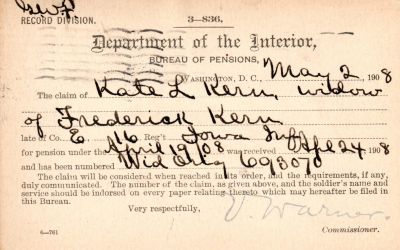 RECORD DIVISION.
3—836.
Department of the Interior,
BUREAU OF PENSIONS,
WASHINGTON, D. C., May 2, 1908
The claim of Kate L Kern, widow
of Frederick Kern
late of Co. E, 16 Reg't Iowa Inf
for pension under the April 19/08 was received Apl 24 1908
and has been numbered Wid Orig 693070
The claim will be considered when reached in its order, and the requirements, if any,
duly communicated. The number of the claim, as given above, and the soldier's name and
service should be indorsed on every paper relating thereto which may hereafter be filed in
this Bureau.
Very respectfully,
V. Warner.
6—761
Commissioner.